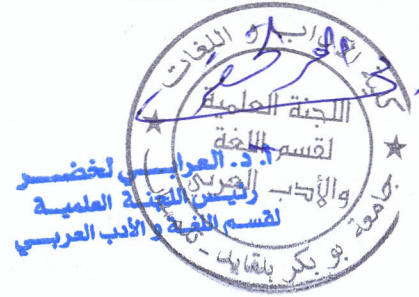 كلية الآداب و اللغات
اللجنة العلمية
لقسم اللغة
والأدب العربي
جامعة بو بكر بلقايد - تلمسان
أ. د. العرابي لخضر
رئيس اللجنة العلمية
لقسم اللغة و الأدب العربي